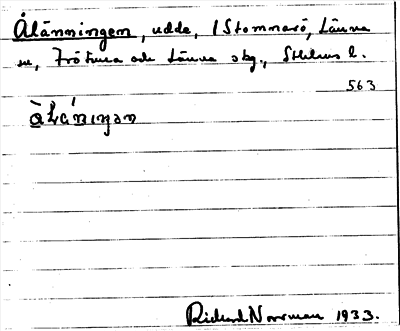 Ålänningen, udde, 1 Stommarö, Länna
sn, Frötuna och Länna skg., Sthlms l.
563
Richard Norrman 1933.